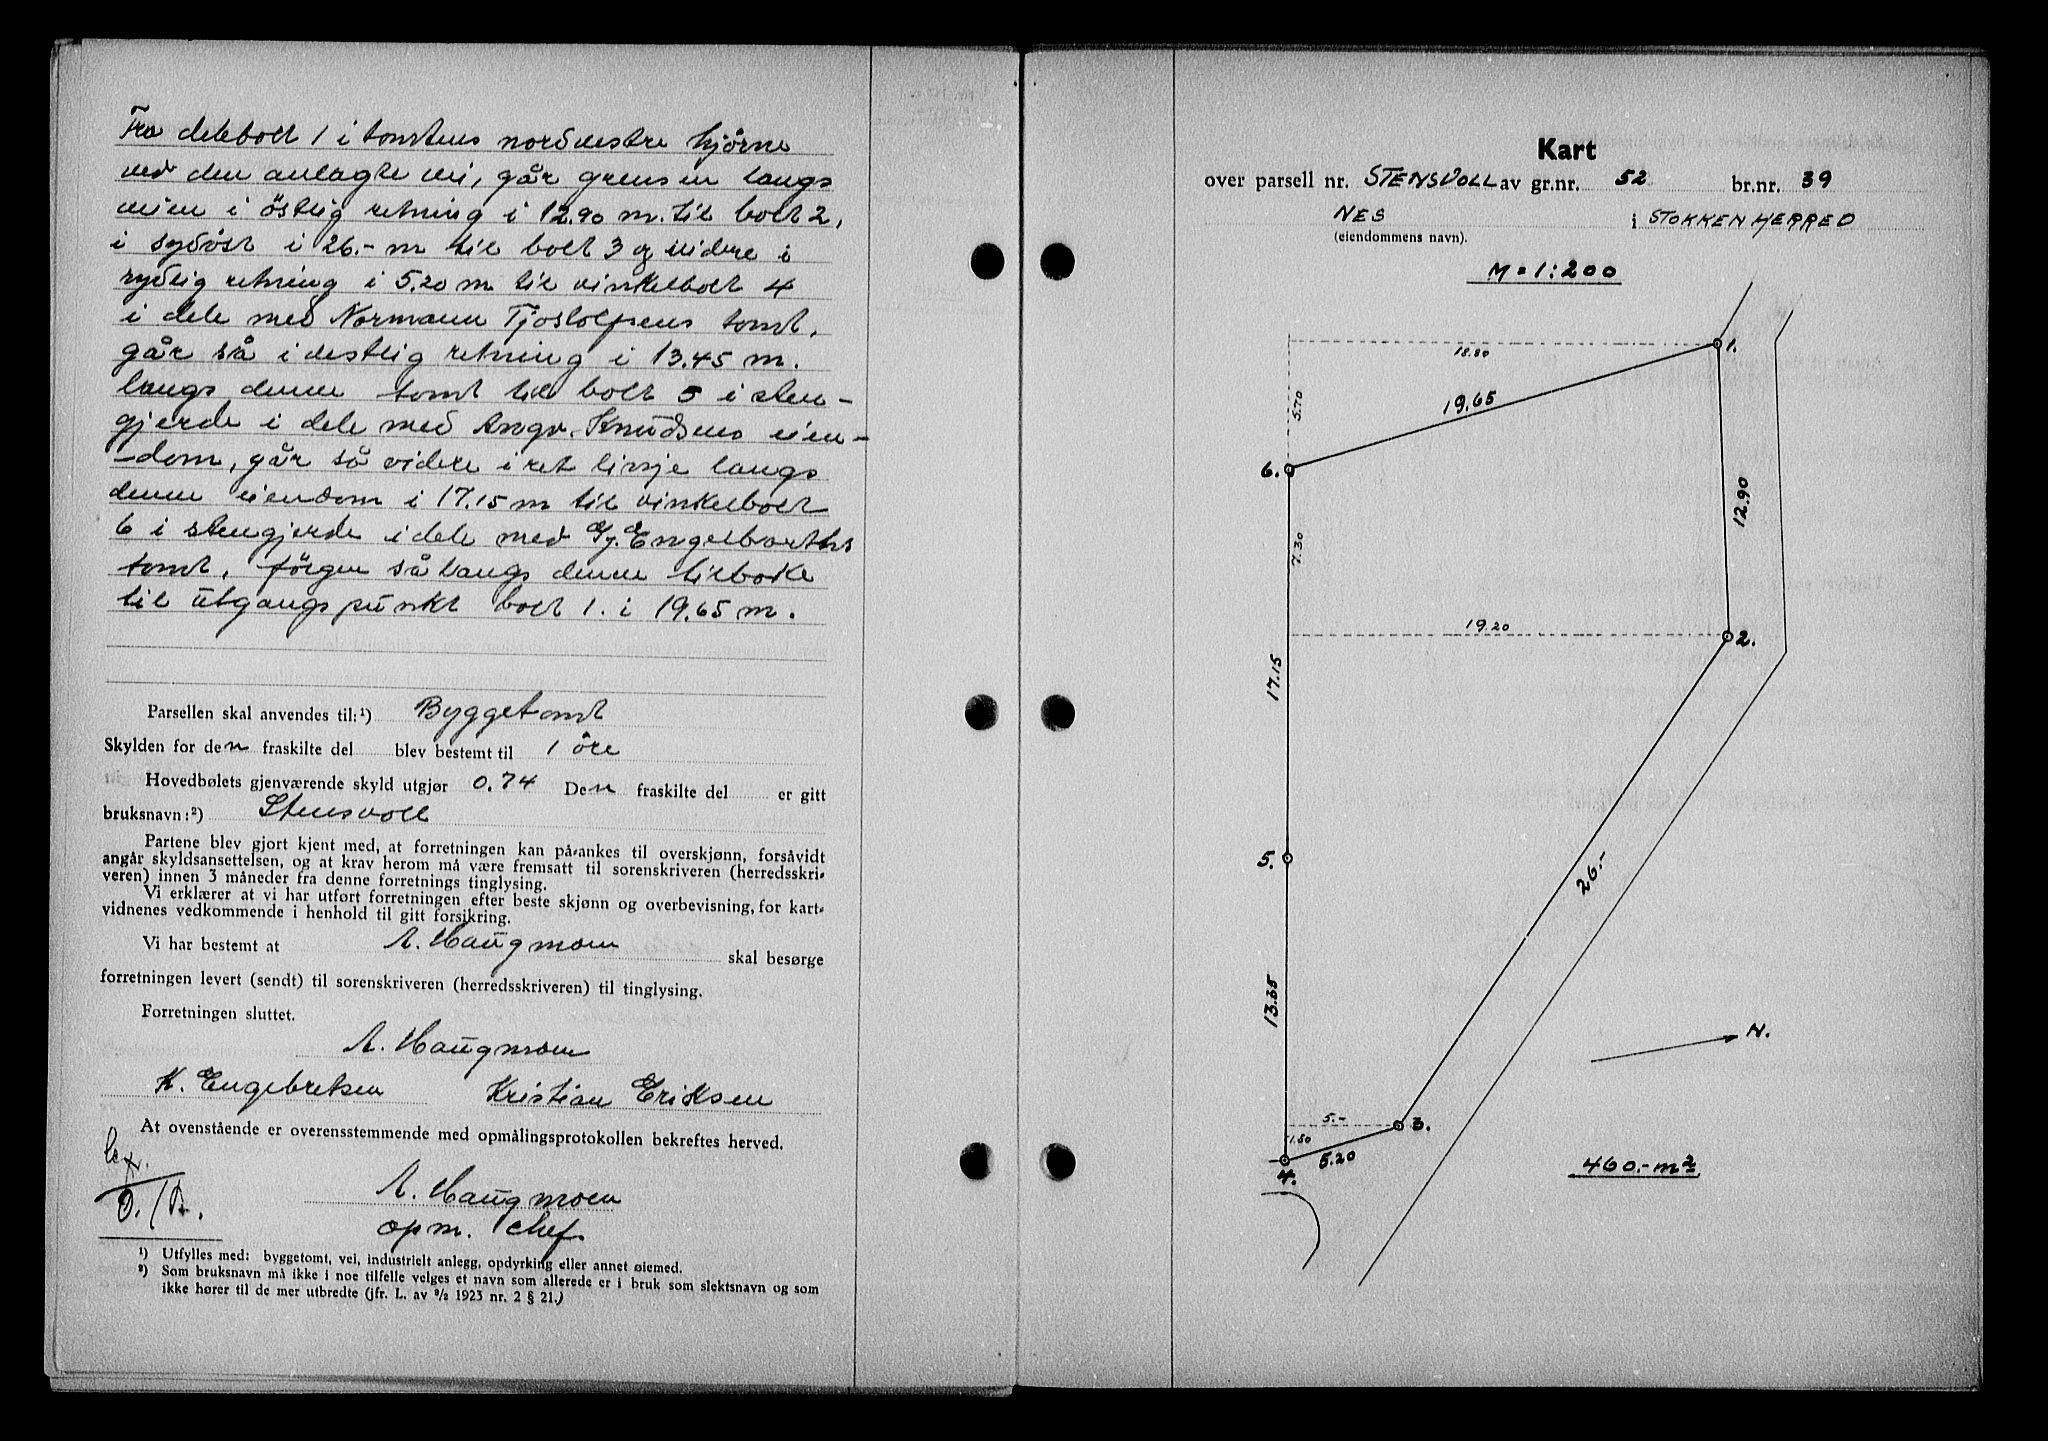 Fra delebolt 1 i tomtens nordvestre hjörne
ved den anlagte vei, går grensen langs
veien i östlig retning i 12.90 m. til bolt 2,
i sydöst i 26.- m til bolt 3 og videre i
sydlig retning i 5.20 m til vinkelbolt 4
i dele med Normann Tjoslolfsens tomt,
går så i vestlig retning i 13.45 m.
langs denne tomt til bolt 5 i sten-
gjerde i dele med Angv. Knudsens eien-
-dom, går så videre i ret linje langs
denne eiendom i 17.15 m til vinkelbolt
6 i stengjerde i dele med Gy. Engelbarths
tomt, fölger så langs denne tilbake
til utgangspunkt bolt 1. i 19.65 m.
Parsellen skal anvendes til:¹) Byggetomt
Skylden for den fraskilte del blev bestemt til 1 öre
Hovedbølets gjenværende skyld utgjør 0.74 Den fraskilte del er gitt
bruksnavn:²) Stensvoll
Partene blev gjort kjent med, at forretningen kan på-ankes til overskjønn, forsåvidt
angår skyldsansettelsen, og at krav herom må være fremsatt til sorenskriveren (herredsskri-
veren) innen 3 måneder fra denne forretnings tinglysing.
Vi erklærer at vi har utført forretningen efter beste skjønn og overbevisning, for kart-
vidnenes vedkommende i henhold til gitt forsikring.
Vi har bestemt at A. Haugmoen skal besørge
forretningen levert (sendt) til sorenskriveren (herredsskriveren) til tinglysing.
Forretningen sluttet.
A. Haugmoen
K. Engebretsen Kristian Eriksen
At ovenstående er overensstemmende med opmålingsprotokollen bekreftes herved.
A. Haugmoen
opm. chef
¹) Utfylles med: byggetomt, vei, industrielt anlegg, opdyrking eller annet øiemed.
²) Som bruksnavn må ikke i noe tilfelle velges et navn som allerede er i bruk som slektsnavn og som
ikke hører til de mer utbredte (jfr. L. av ⁹/₂ 1923 nr. 2 § 21.)
Kart
over parsell nr. STENSVOLL av gr.nr. 52 br.nr. 39
NES i STOKKEN HERRED
(eiendommens navn).
M = 1:200
18.80
1.
5.70
19.65
6.
12.90
7.30
19.20
2.
17.15
5.
26.-
13.35
N.
5.-
3.
1.50
5.20
4.
460.- m²